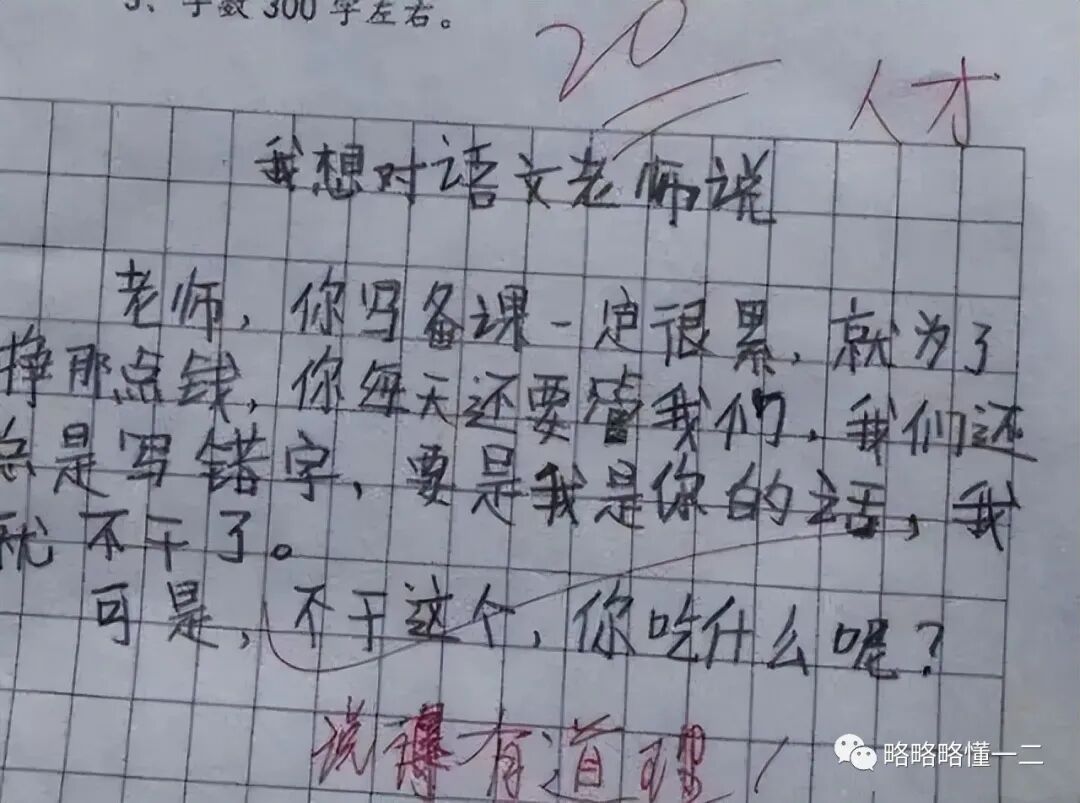 3、字数300字左右。
20
人才
我想对语文老师说
老师,你写备课一定很累,就为了
挣那点钱,你每天还要管我们,我们还
总是写错字,要是我是你的话,我
就不干了。
可是,不干这个,你吃什么呢?
说得有道理!
略略略懂一二